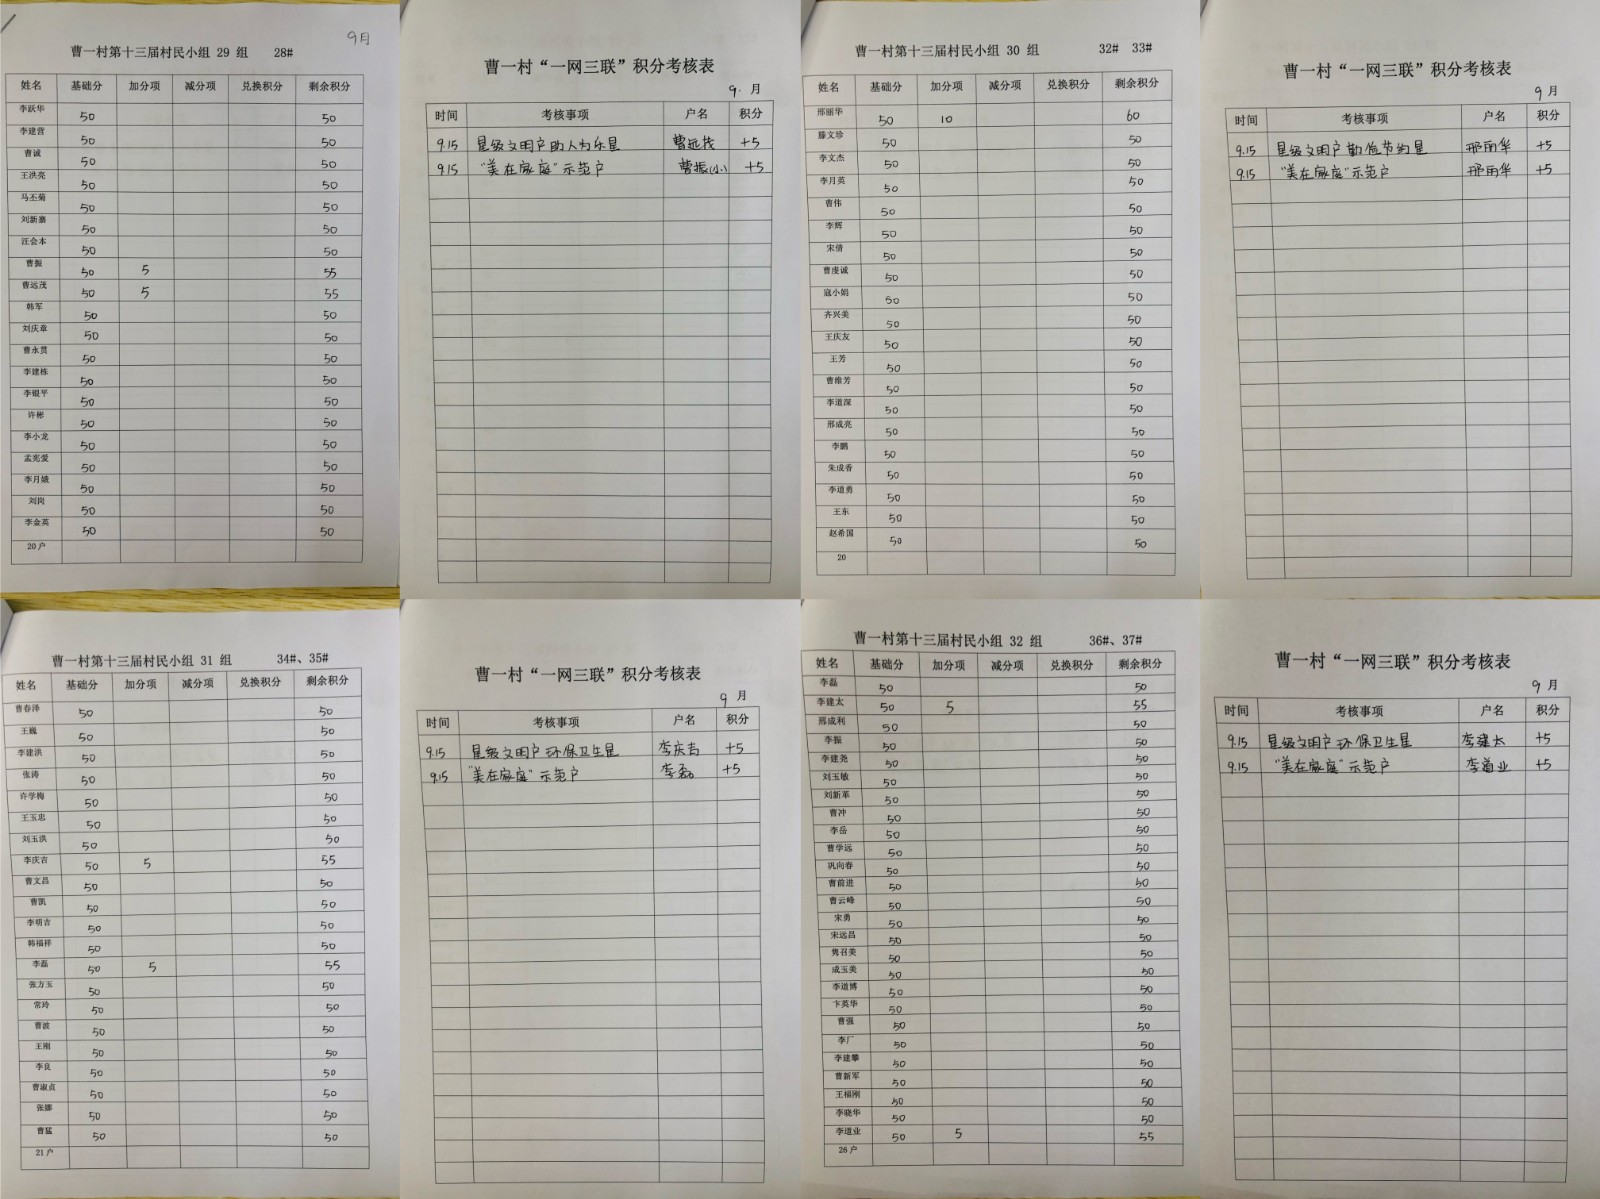 曹一村第十三届村民小组 29 组 28# 9月
姓名 基础分 加分项 减分项 兑换积分 剩余积分
李跃华 50 50
李建营 50 50
曹诚 50 50
王洪亮 50 50
马丕菊 50 50
刘新寨 50 50
汪会本 50 50
曹振 50 5 55
曹远茂 50 5 55
韩军 50 50
刘庆章 50 50
曹永贯 50 50
李建栋 50 50
李银平 50 50
许彬 50 50
李小龙 50 50
孟宪爱 50 50
李月娥 50 50
刘岗 50 50
李金英 50 50
20户
曹一村“一网三联”积分考核表
9 月
时间 考核事项 户名 积分
9.15 星级文明户助人为乐星 曹远茂 +5
9.15 “美在家庭”示范户 曹振(小) +5
曹一村第十三届村民小组 30 组 32# 33#
姓名 基础分 加分项 减分项 兑换积分 剩余积分
邢丽华 50 10 60
滕文珍 50 50
李文杰 50 50
李月英 50 50
曹伟 50 50
李辉 50 50
宋倩 50 50
曹虔诚 50 50
寇小娟 50 50
齐兴美 50 50
王庆友 50 50
王芳 50 50
曹维芳 50 50
李道深 50 50
邢成亮 50 50
李鹏 50 50
朱成香 50 50
李道勇 50 50
王东 50 50
赵希国 50 50
20
曹一村“一网三联”积分考核表
9 月
时间 考核事项 户名 积分
9.15 星级文明户勤俭节约星 邢丽华 +5
9.15 “美在家庭”示范户 邢丽华 +5
曹一村第十三届村民小组 31 组 34#、35#
姓名 基础分 加分项 减分项 兑换积分 剩余积分
曹春泽 50 50
王巍 50 50
李建洪 50 50
张涛 50 50
许学梅 50 50
王玉忠 50 50
刘玉洪 50 50
李庆吉 50 5 55
曹文昌 50 50
曹凯 50 50
李明吉 50 50
韩福祥 50 50
李磊 50 5 55
张方玉 50 50
常玲 50 50
曹波 50 50
王刚 50 50
李良 50 50
曹淑贞 50 50
张娜 50 50
曹猛 50 50
21户
曹一村“一网三联”积分考核表
9 月
时间 考核事项 户名 积分
9.15 星级文明户环保卫生星 李庆吉 +5
9.15 “美在家庭”示范户 李磊 +5
曹一村第十三届村民小组 32 组 36#、37#
姓名 基础分 加分项 减分项 兑换积分 剩余积分
李磊 50 50
李建太 50 5 55
邢成利 50 50
李振 50 50
李建尧 50 50
刘玉敏 50 50
刘新军 50 50
曹冲 50 50
李岳 50 50
曹学远 50 50
巩向春 50 50
曹前进 50 50
曹云峰 50 50
宋勇 50 50
宋远昌 50 50
隽召美 50 50
成玉美 50 50
李道博 50 50
卞英华 50 50
曹强 50 50
李厂 50 50
李建攀 50 50
曹新军 50 50
王福刚 50 50
李晓华 50 50
李道业 50 5 55
26户
曹一村“一网三联”积分考核表
9 月
时间 考核事项 户名 积分
9.15 星级文明户环保卫生星 李建太 +5
9.15 “美在家庭”示范户 李道业 +5